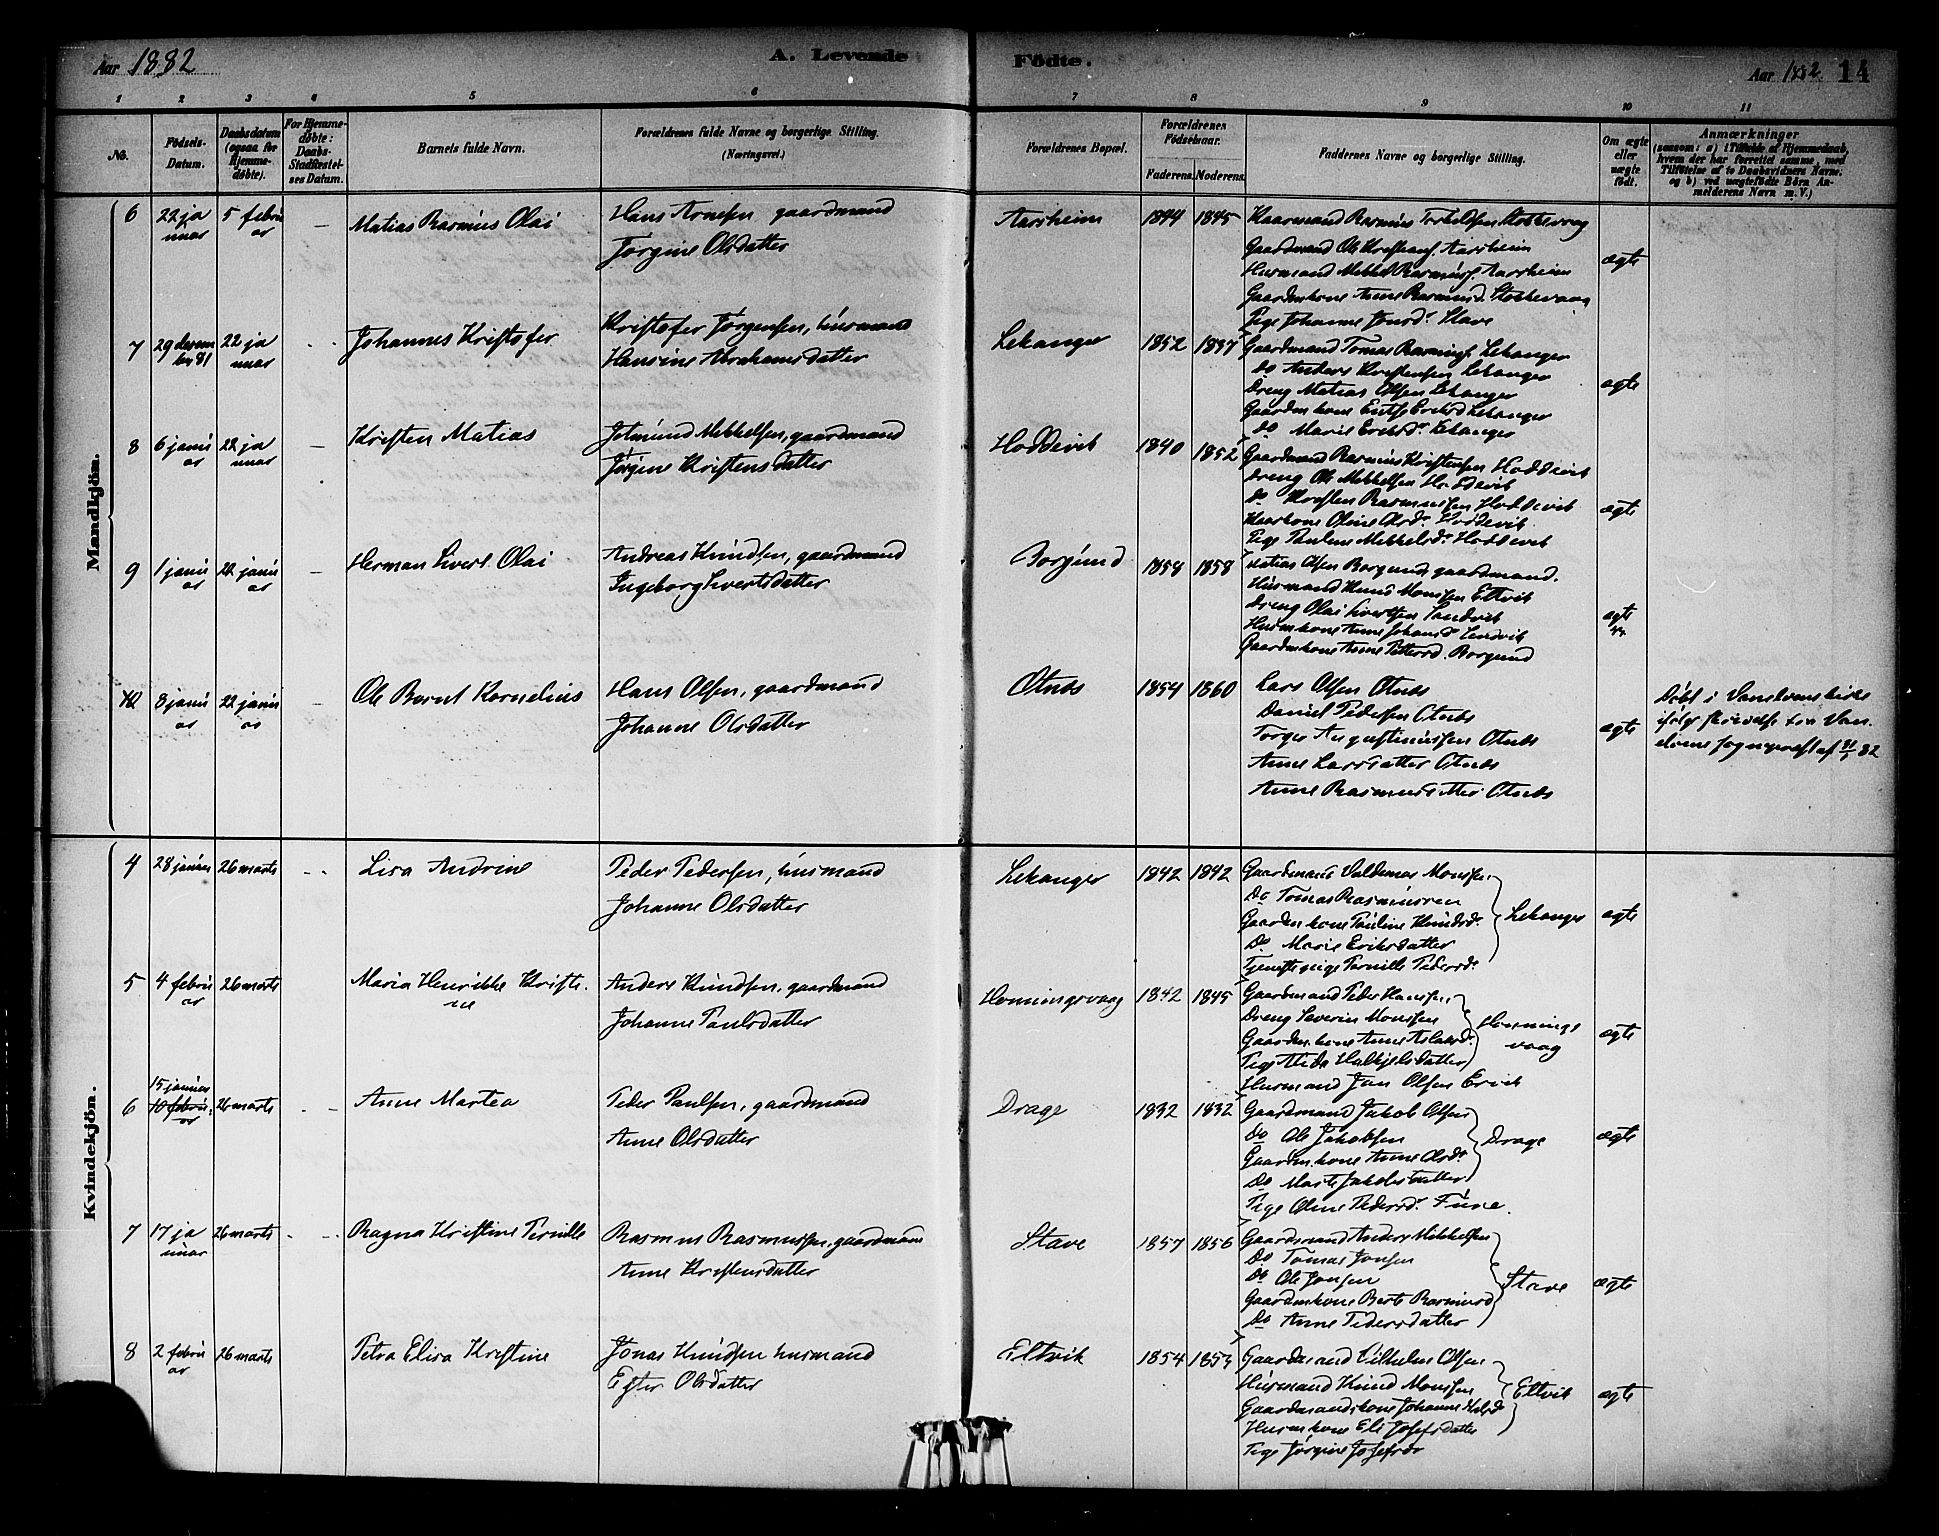 Aar 1882
A. Levende
Födte.
Aar 1882.
14
1 2 3 4 5 6 7 8 9 10 11
No.
Födsels-Datum.
Daabsdatum (ogsaa for Hjemme-døbte).
For Hjemme-døbte: Daabs-Stadfæstel-ses Datum.
Barnets fulde Navn.
Forældrenes fulde Navne og borgerlige Stilling.
(Næringsvei.)
Forældrenes Bopæl.
Forældrenes Födselsaar.
Faderens. Moderens.
Faddernes Navne og borgerlige Stilling.
Om ægte eller uægte födt.
Anmærkninger
(saasom: a) i Tilfælde af Hjemmedaab, hvem der har forrettet samme, med Tilföielse af to Daabsvidners Navne; og b) ved uægtefödte Börn An-melderens Navn m. V.)
Mandkjön.
6 22 januar 5 februar — Matias Rasmus Olai
Hans Arnesen gaardmand
Jørgine Olsdatter
Aarsheim 1844 1845
Kaarmand Rasmus Torkildsen Stokkevaag
Gaardmand Ole Kristians. Aarsheim
Husmand Mikkel Rasmuss. Aarsheim
Gaardmkone Anne Rasmusd. Stokkevaag
Pige Johanne Jonsd. Stave
ægte
7 29 decem ber 81 22 januar - - Johannes Kristofer
Kristofer Jørgensen, husmand
Hansine Abrahamsdatter
Lekanger 1852 1837
Gaardmand Tomas Rasmuss. Lekanger
do Anders Kristensen Lekanger
Dreng Matias Olsen Lekanger
Gaardm kone Eriksd Lekanger
do Marie Eriksdr Lekanger
ægte
8 6 januar 22 januar — Kristen Matias
Jetmund Mikkelsen, gaardmand
Jørgine Kristensdatter
Hoddevik 1840 1852
Gaardmand Rasmus Kristensen Hoddevik
Dreng Ole Mikkelsen Hoddevik
do Kristen Rasmussen Hoddevik
Kaarkone Oline Olsdr Hoddevik
Pige Pauline Mikkelsdr Hoddevik
ægte
9 1 januar 22 januar — Herman Sivert Olai
Andreas Knudsen, gaardmand
Ingeborg Sivertsdatter
Borgund 1854 1858
Matias Olsen Borgund gaardmand.
Husmand Knud Monssen Eltvik
Dreng Olai Sivertsen Sandvik
Husmkone Anne Johansd Sandvik
Gaardmkone Anne Pettersd. Borgund
ægte
10 8 januar 22 januar — Ole Bernt Kornelius
Hans Olsen, gaardmand
Johanne Olsdatter
Otnes 1854 1860
Lars Olsen Otnes
Daniel Pedersen Otnes
Torger Augustinussen Otnes
Anne Larsdatter Otnes
Anne Rasmusdatter Otnes
ægte
Døbt i Vanelvens kirke
ifølge skrivelse fra Van-
elvens sogneprest af 31/1 82
Kvindekjön.
4 28 januar 26 marts - - Lisa Andrine
Peder Pedersen, husmand
Johanne Olsdatter
Lekanger 1842 1842
Gaardmand Valdemar Monssen
Do Tomas Rasmussen
Gaardmkone Pauline Knudsdr
Do Marie Eriksdatter
Tjenestepige Pernille Pedersdr
Lekanger
ægte
5 4 februar 26 marts Maria Henrikke Kristi-
ne
Anders Knudsen, gaardmand
Johanne Paulsdatter
Honningsvaag 1842 1845
Gaardmand Peder Hanssen
Dreng Severin Monssen
Gaardm. kone Anne Aslaksdr
Pige Alida Halkjelsdatter
Honnings
vaag
Husmand Jan Olsen Ervik
ægte
6 15 januar 10 februar 26 marts - — Anne Martea
Peder Paulsen, gaardmand
Anne Olsdatter
Drage 1832 1832
Gaardmand Jakob Olsen
Do Ole Jakobsen
Gaardm. kone Anne Olsdr
Do Marte Jakobsdatter
Drage
Pige Oline Pedersdr Fure.
ægte
7 17 januar 26 marts - - Ragna Kristine Pernille
Rasmus Rasmussen, gaardmand
Anne Kristensdatter
Stave 1857 1856
Gaardmand Anders Mikkelsen
Do Tomas Jonsen
Do Ole Jonsen
Gaardmkone Berte Rasmusd
Do Anne Pedersdatter
Stave
ægte
8 2 februar 26 marts Petra Elisa Kristine
Jonas Knudsen husmand
Ester Olsdatter
Eltvik 1854 1853
Gaardmand Vilhelm Olsen
Husmand Knud Monssen
Gaardmandskone Johanne
Husm kone Eli Josefsdatter
Eltvik
Pige Jørgine Josefsdr
ægte